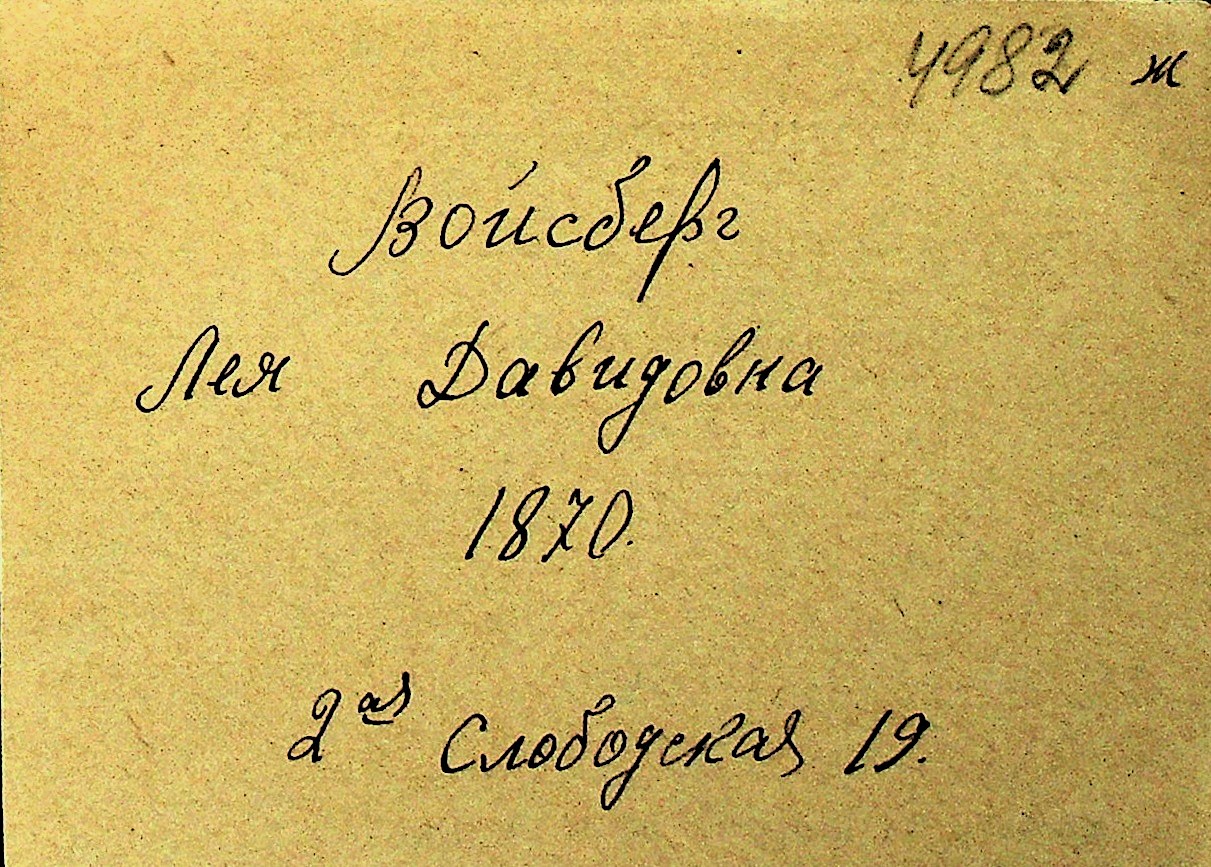 4982 ж
Войсберг
Лея Давидовна
1870.
2ая Слободская 19.